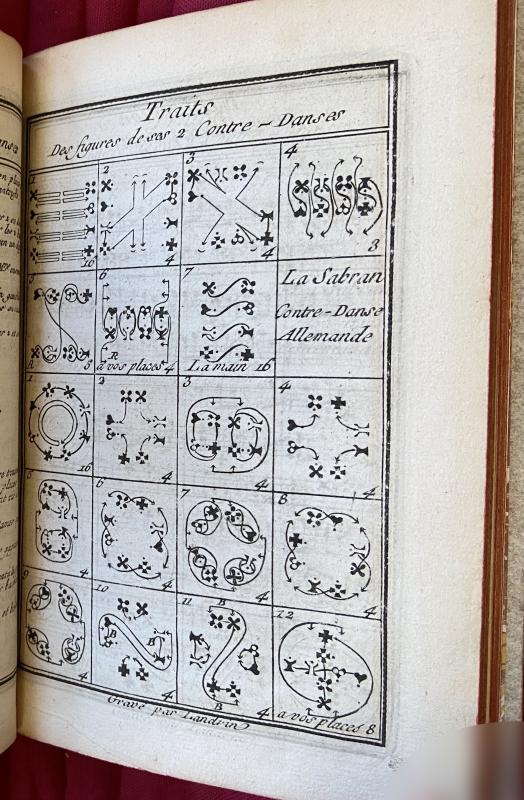 Traits
Des figures de ses 2 Contre - Danses
1
16
2
4
3
4
4
3
5
R
5
6
R
a vos places 4
7
La main 16
La Sabran
Contre-Danse
Allemande
1
16
2
4
3
4
4
4
5
4
6
4
7
4
8
4
9
4
10
B
B
4
11
B
B
4
12
a vos places 8
Gravé par Landrin